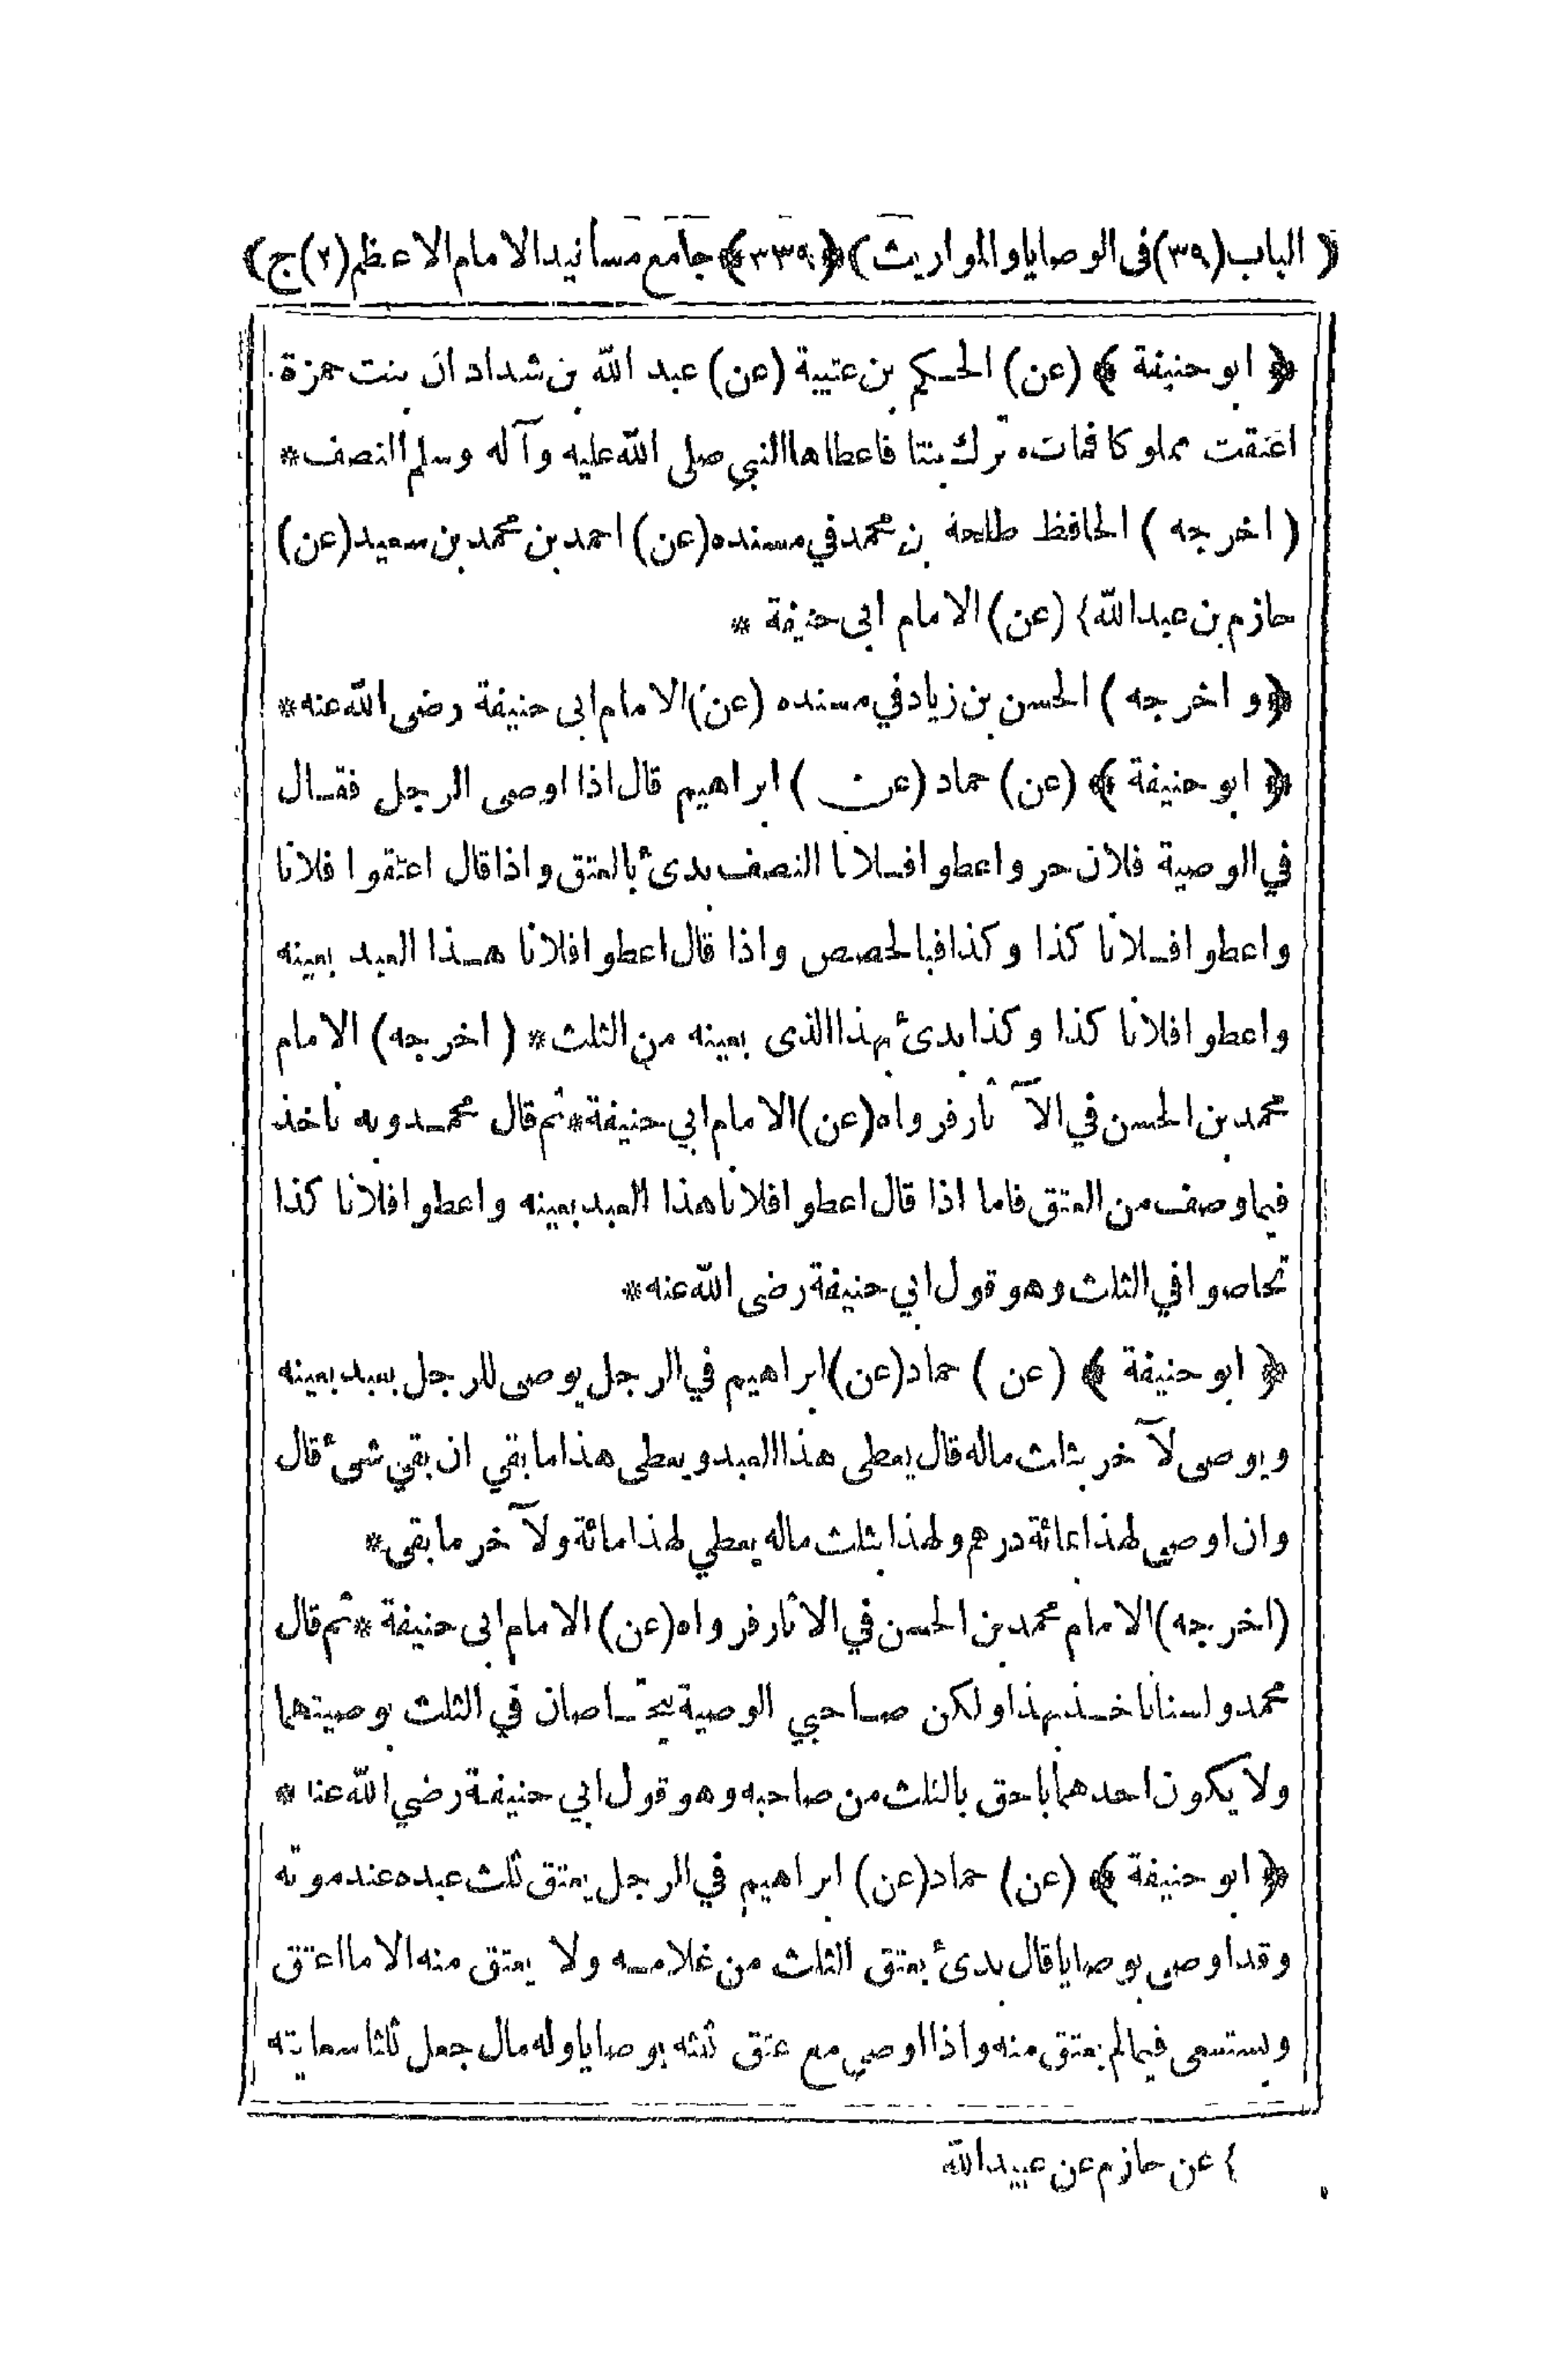 ﴿ الباب (٣٩) فى الوصايا والمواريث ﴾ ﴿٣٣٩﴾ جامع مسانيد الامام الاعظم (٢) ج ﴾
﴿ ابو حنيفة ﴾ (عن) الحكم بن عتيبة (عن) عبد الله بن شداد ان بنت حمزة
اعتقت مملوكا فمات وترك بنتا فاعطاها النبي صلى الله عليه وآله وسلم النصف *
( اخرجه ) الحافظ طلحة بن محمد في مسنده (عن) احمد بن محمد بن سعيد (عن)
حازم بن عبدالله } (عن) الامام ابى حنيفة *
﴿ و اخرجه ) الحسن بن زياد في مسنده (عن) الامام ابى حنيفة رضى الله عنه *
﴿ ابو حنيفة ﴾ (عن) حماد (عن) ابراهيم قال اذا اوصى الرجل فقال
في الوصية فلان حر واعطوا فلانا النصف بدىٔ بالعتق واذا قال اعتقوا فلانا
واعطوا فلانا كذا وكذا فبالحصص واذا قال اعطوا فلانا هذا العبد بعينه
واعطوا فلانا كذا وكذا بدىٔ بهذا الذى بعينه من الثلث * ( اخرجه ) الامام
محمد بن الحسن في الآثار فرواه (عن) الامام ابي حنيفة * ثم قال محمد وبه ناخذ
فيما وصف من العتق فاما اذا قال اعطوا فلانا هذا العبد بعينه واعطوا فلانا كذا
تحاصوا في الثلث وهو قول ابي حنيفة رضى الله عنه *
﴿ ابو حنيفة ﴾ (عن) حماد (عن) ابراهيم في الرجل يوصى للرجل بعبد بعينه
ويوصى لآخر بثلث ماله قال يعطى هذا العبد ويعطى هذا ما بقي ان بقي شىٔ قال
وان اوصى لهذا بمائة درهم ولهذا بثلث ماله يعطي لهذا مائة ولآخر ما بقى *
(اخرجه) الامام محمد بن الحسن في الاثار فرواه (عن) الامام ابى حنيفة * ثم قال
محمد ولسنا ناخذ بهذا ولكن صاحبي الوصية يتحاصان في الثلث بوصيتهما
ولا يكون احدهما باحق بالثلث من صاحبه وهو قول ابي حنيفة رضي الله عنا *
﴿ ابو حنيفة ﴾ (عن) حماد (عن) ابراهيم في الرجل يعتق ثلث عبده عند موته
وقد اوصى بوصايا قال بدىٔ بعتق الثلث من غلامه ولا يعتق منه الا ما اعتق
ويستسعى فيما لم يعتق منه واذا اوصى مع عتق ثلثه بوصايا وله مال جعل ثلثا سعايته
} عن حازم عن عبيدالله